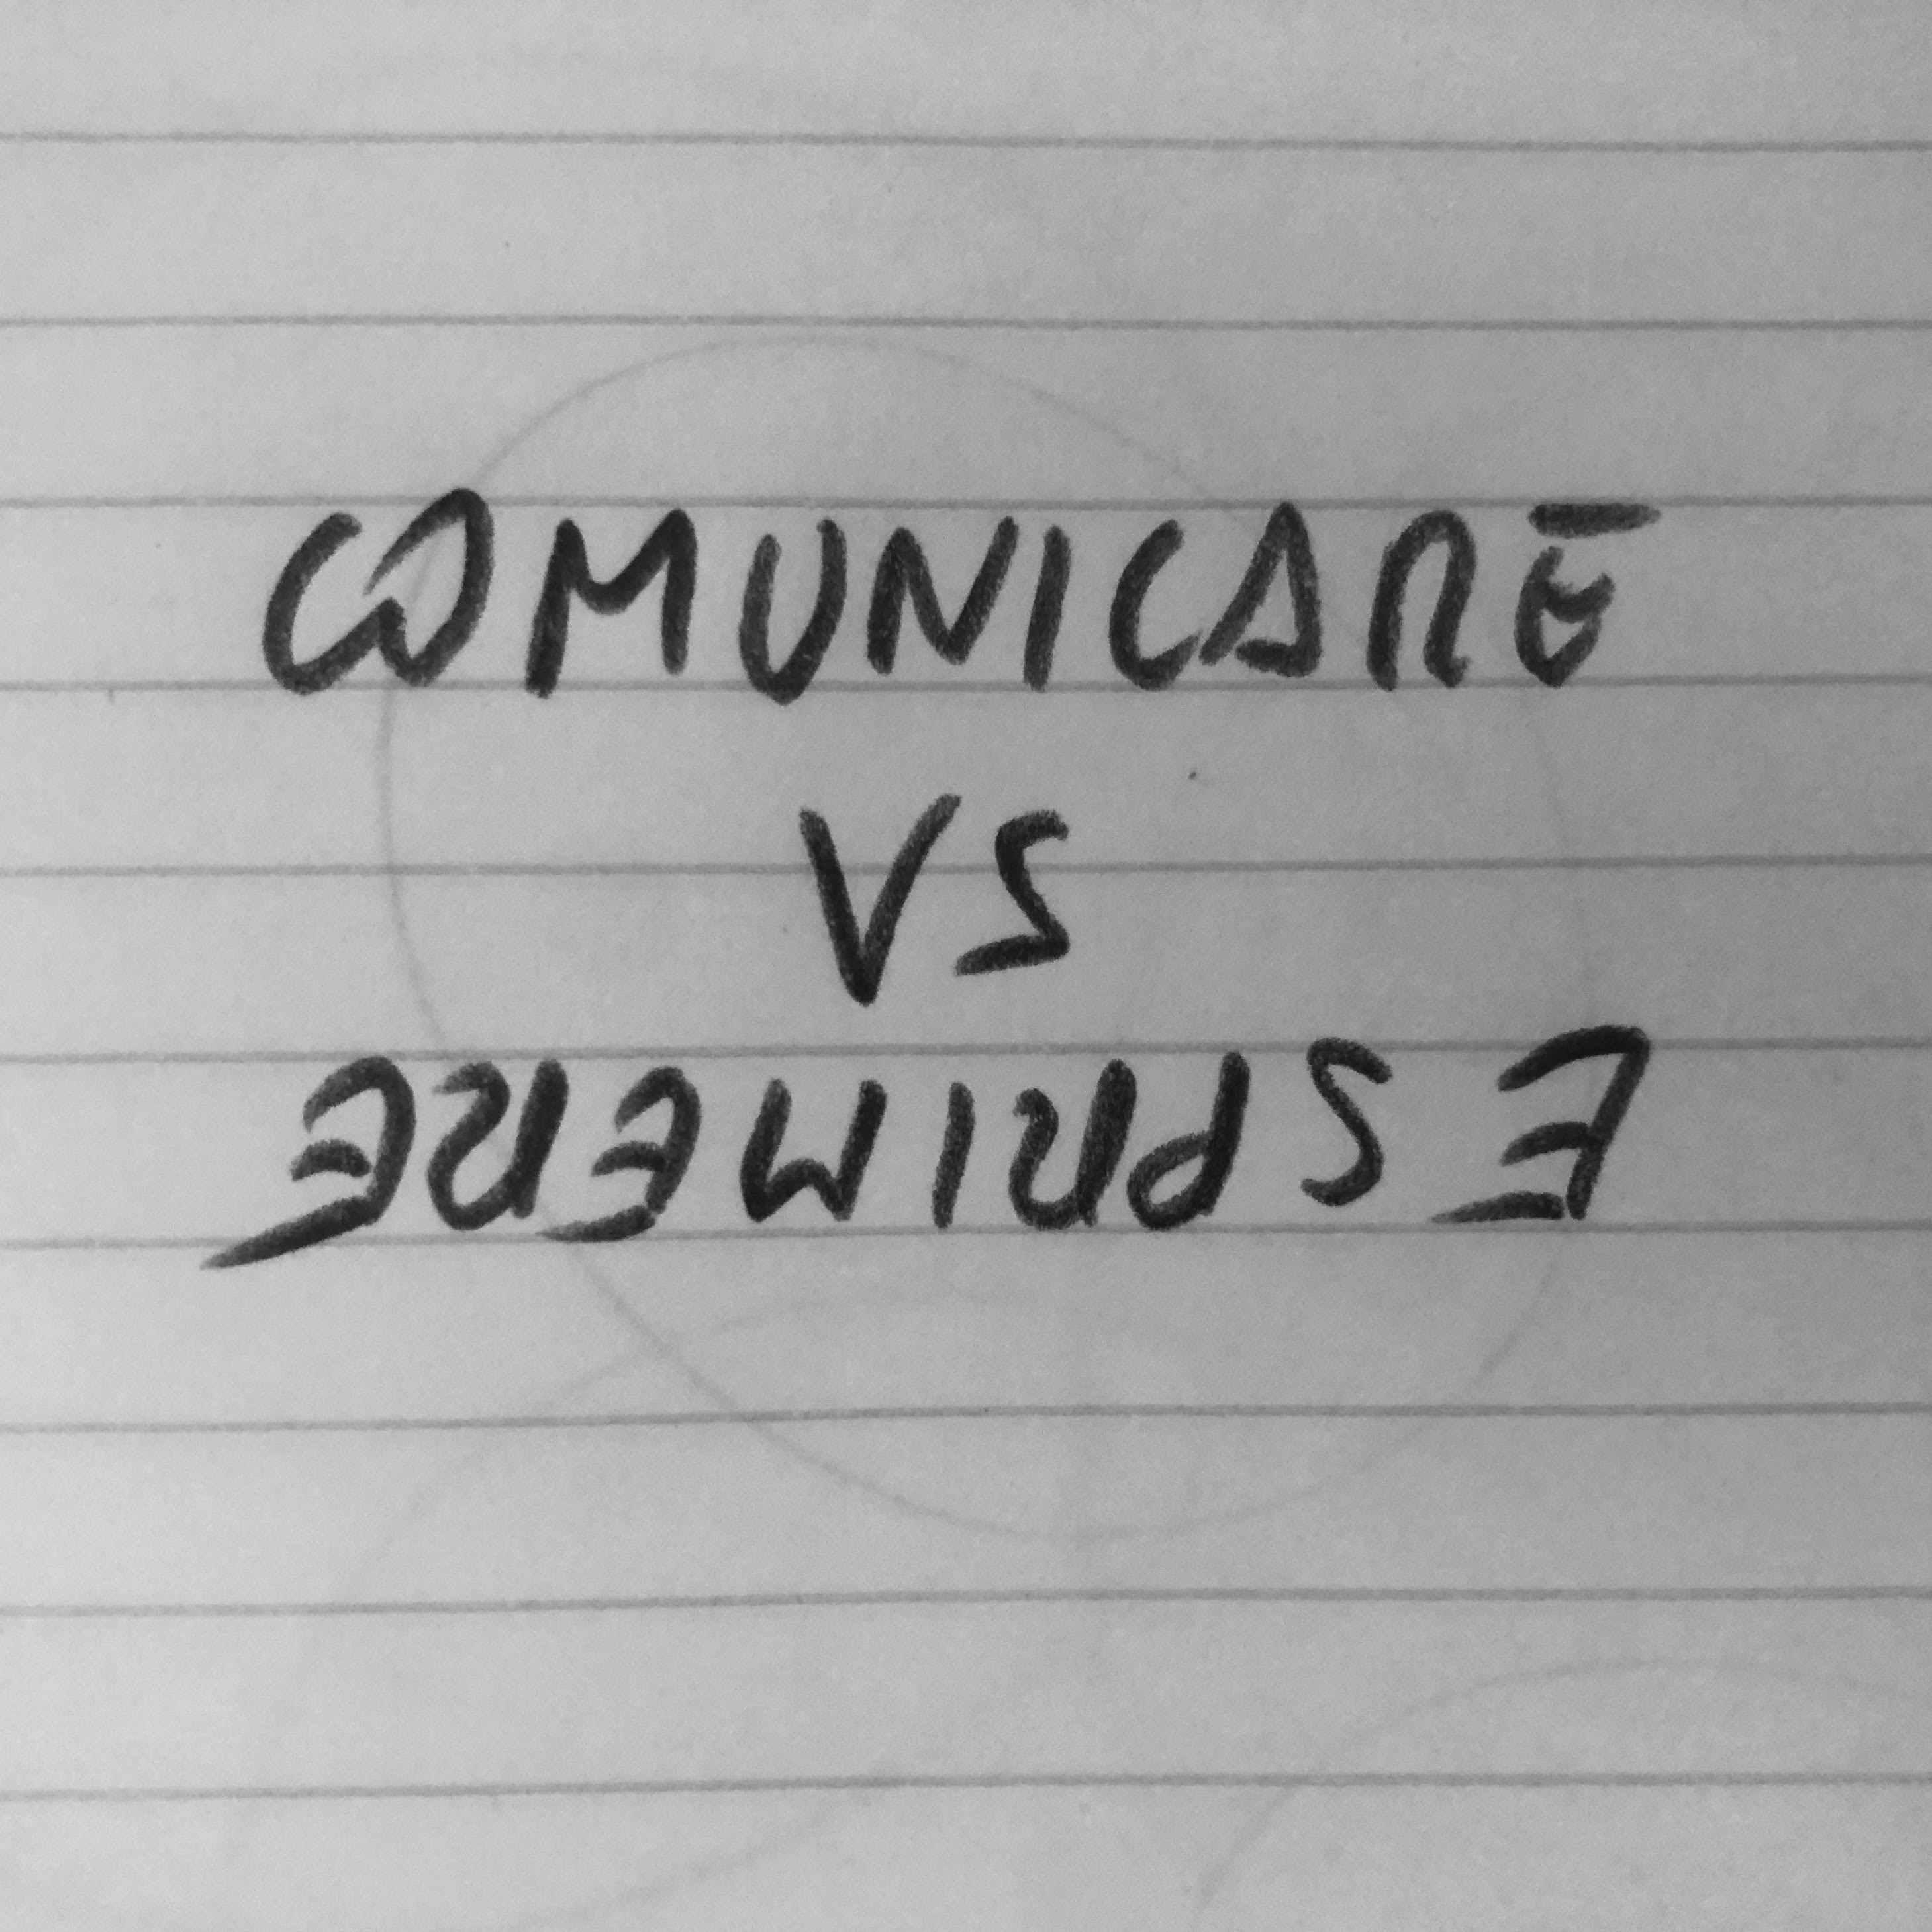 COMUNICARE
VS
ESPRIMERE